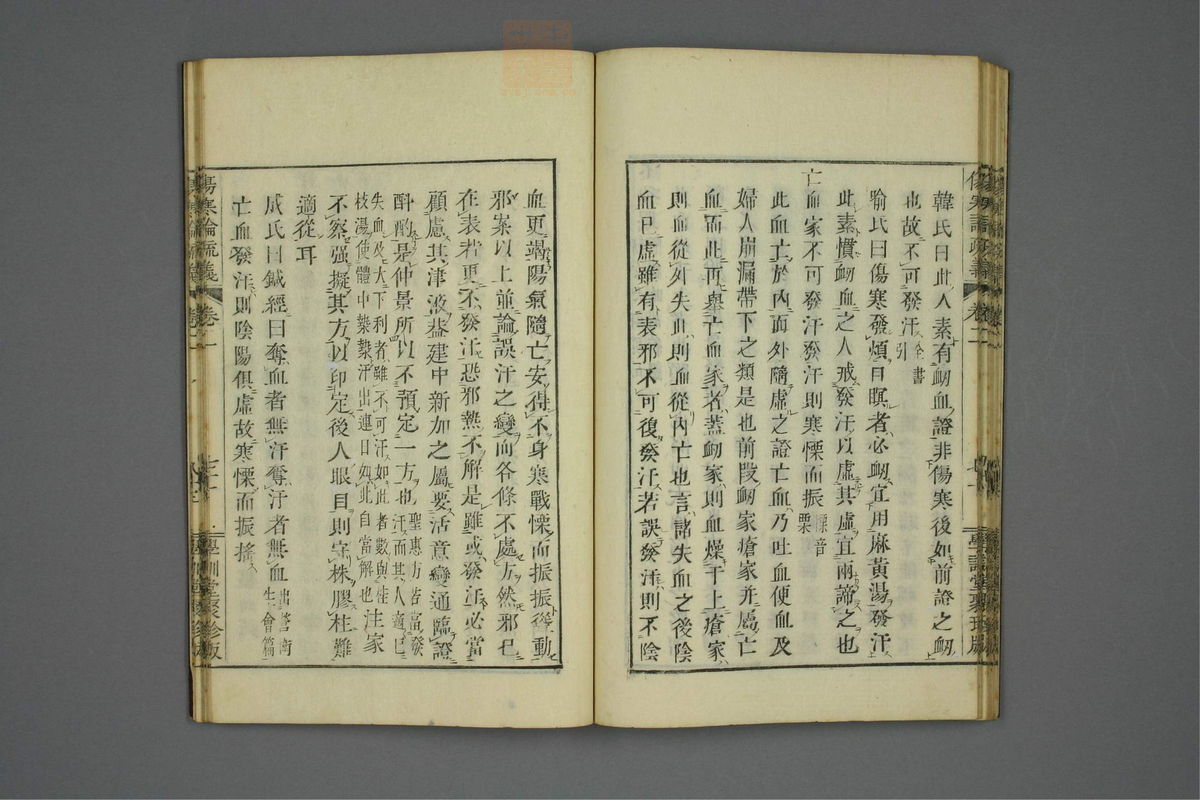 韓氏曰此人素有衂血證非傷寒後如前證之衂
也故不可發汗全書引
喻氏曰傷寒發煩目瞑者必衂宜用麻黃湯發汗
此素慣衂血之人戒發汗以虛其虛宜兩諦之也
亡血家不可發汗發汗則寒慄而振慄音栗
此血亡於內而外隨虛之證亡血乃吐血便血及
婦人崩漏帶下之類是也前段衂家瘡家并屬亡
血而此再舉亡血家者蓋衂家則血燥于上瘡家
則血從外失此則血從內亡也言諸失血之後陰
血已虛雖有表邪不可復發汗若誤發汗則不陰
血更竭陽氣隨亡安得不身寒戰慄而振振聳動
邪案以上並論誤汗之變而各條不處方然邪已
在表若更不發汗恐邪熱不解是雖或發汗必當
顧慮其津液葢建中新加之屬要活意變通臨證
斟酌是仲景所以不預定一方也聖惠方若當發汗而其人適已
失血及大下利者雖不可汗如此者數與桂枝湯使體中漐漐汗出連日如此自當解也注家
不察强擬其方以印定後人眼目則守株膠柱難
適從耳
成氏曰鍼經曰奪血者無汗奪汗者無血出營衛生會篇
亡血發汗則陰陽俱虛故寒慄而振搖
傷寒論疏義
卷二
學訓堂聚珍版